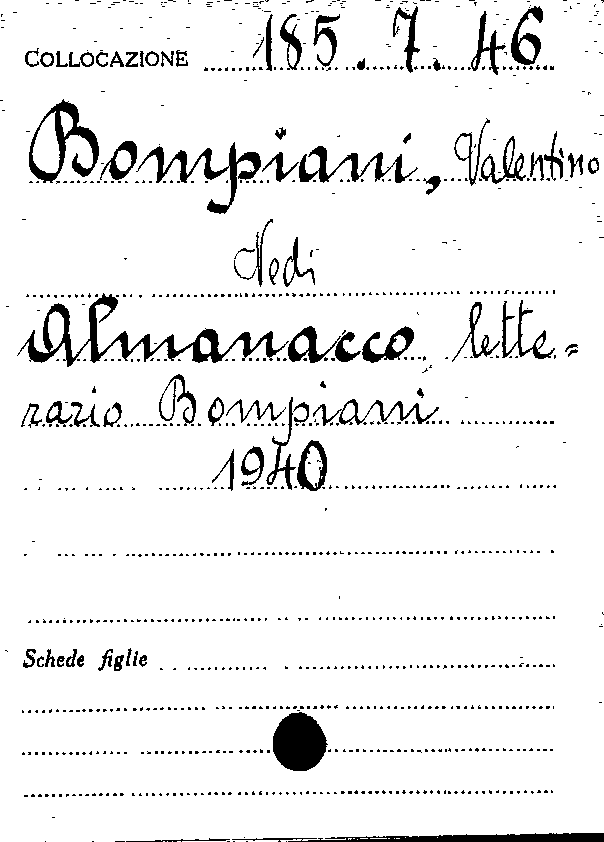 COLLOCAZIONE 185.7.46
Bompiani, Valentino
Vedi
Almanacco lette=
rario Bompiani
1940
Schede figlie